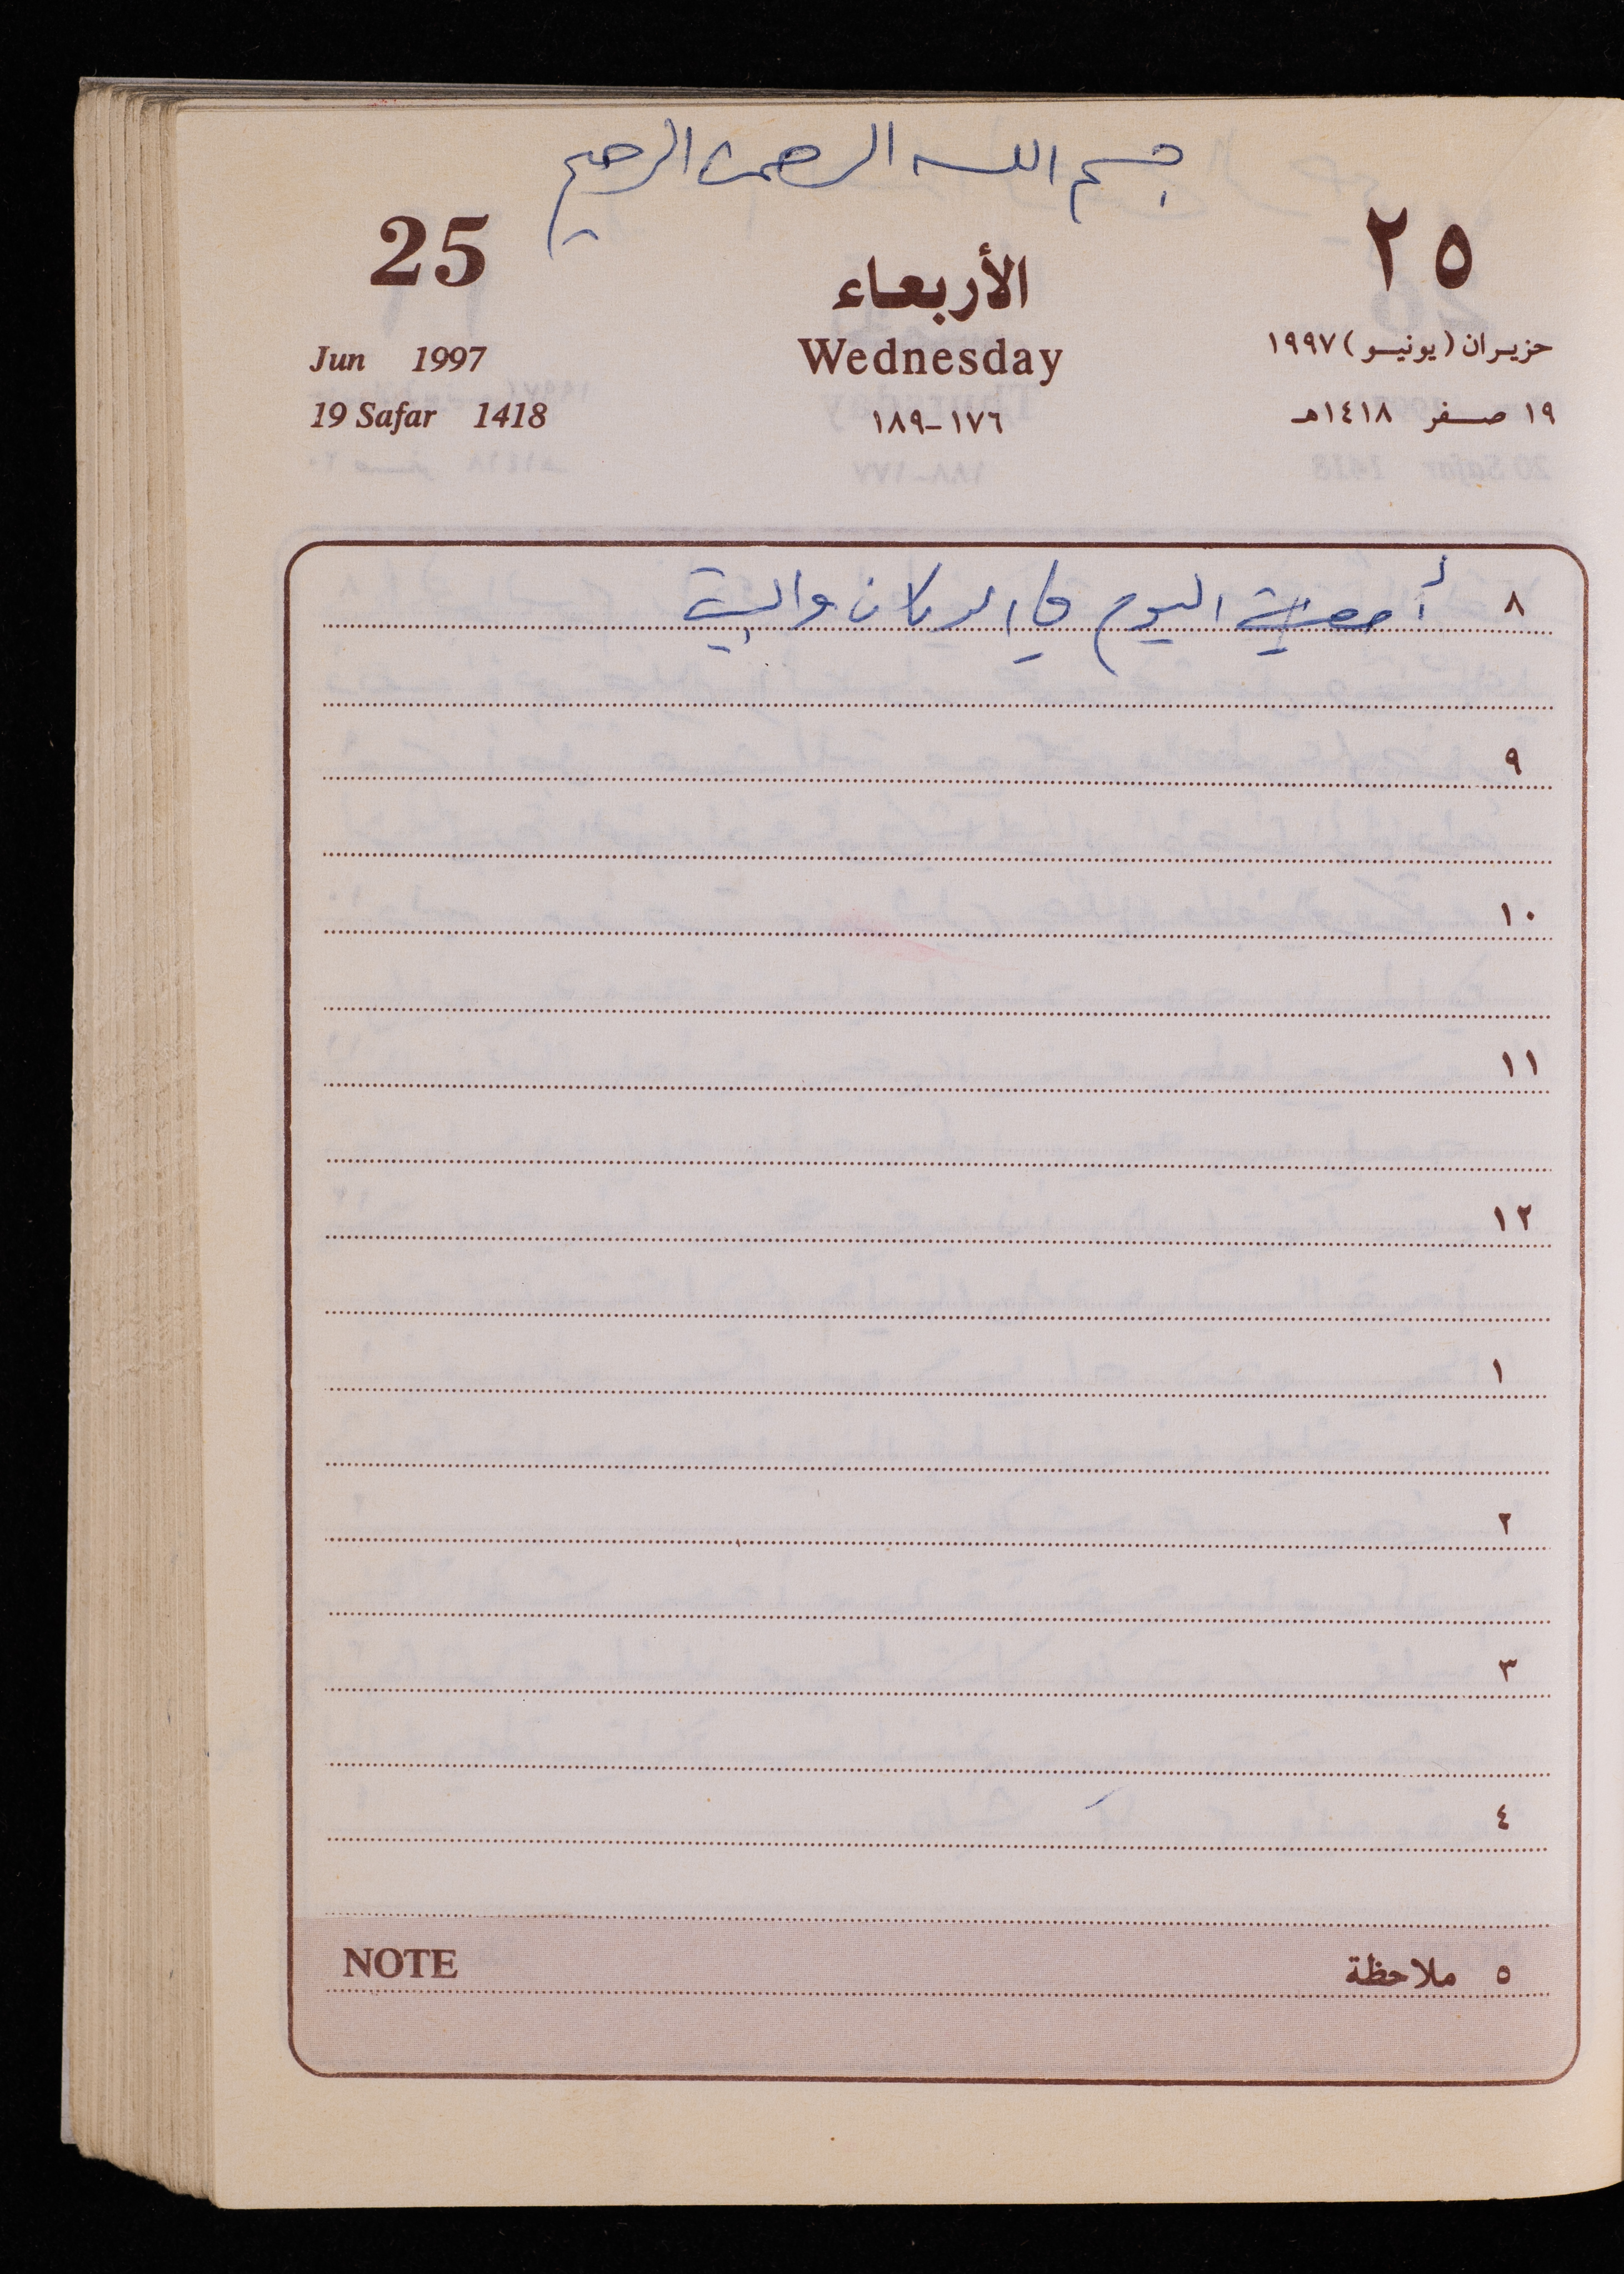 بسم الله الرحمن الرحيم
25 الأربعاء ٢٥
Jun 1997 Wednesday حزيران (يونيو) ١٩٩٧
19 Safar 1418 ١٧٦-١٨٩ ١٩ صفر ١٤١٨هـ
٨ أمضيت اليوم في الدكان والبيت
٩
١٠
١١
١٢
١
٢
٣
٤
NOTE ٥ ملاحظة